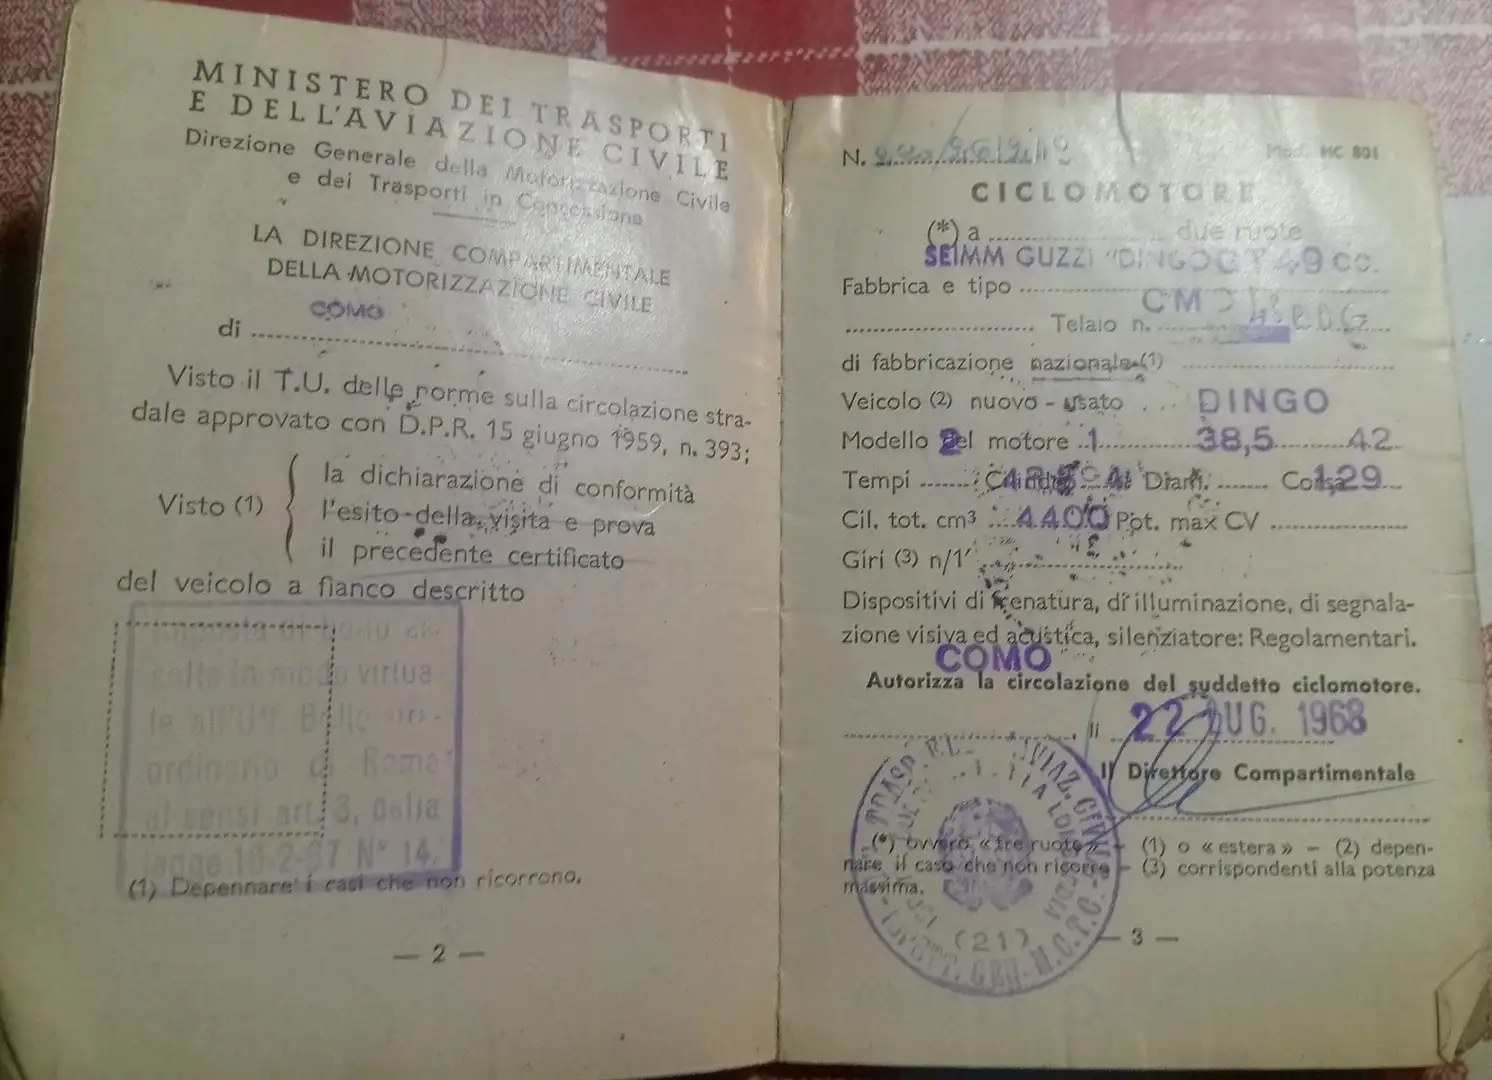 MINISTERO DEI TRASPORTI
E DELL'AVIAZIONE CIVILE
Direzione Generale della Motorizzazione Civile
e dei Trasporti in Concessione
LA DIREZIONE COMPARTIMENTALE
DELLA MOTORIZZAZIONE CIVILE
COMO
di
Visto il T.U. delle norme sulla circolazione stra-
dale approvato con D.P.R. 15 giugno 1959, n. 393;
Visto (1)
la dichiarazione di conformità
l'esito della visita e prova
il precedente certificato
del veicolo a fianco descritto
in modo virtua
le all'Uff. Bollo stra-
ordinario di Roma
ai sensi art. 3, della
legge 18-2-67 N° 14.
(1) Depennare i casi che non ricorrono.
— 2 —
N.
Mod. MC 801
CICLOMOTORE
(*) a due ruote
SEIMM GUZZI "DINGO GT 49 cc.
Fabbrica e tipo
Telaio n.
di fabbricazione nazionale (1)
Veicolo (2) nuovo - usato DINGO
Modello del motore 1 38,5 42
2
Tempi Diam. Corsa 1,29
Cil. tot. cm³ 4400 Pot. max CV
Giri (3) n/1'
Dispositivi di frenatura, di illuminazione, di segnala-
zione visiva ed acustica, silenziatore: Regolamentari.
COMO
Autorizza la circolazione del suddetto ciclomotore.
li 22 AUG. 1968
Il Direttore Compartimentale
(*) ovvero «tre ruote» - (1) o «estera» - (2) depen-
nare il caso che non ricorre - (3) corrispondenti alla potenza
massima.
(21)
— 3 —